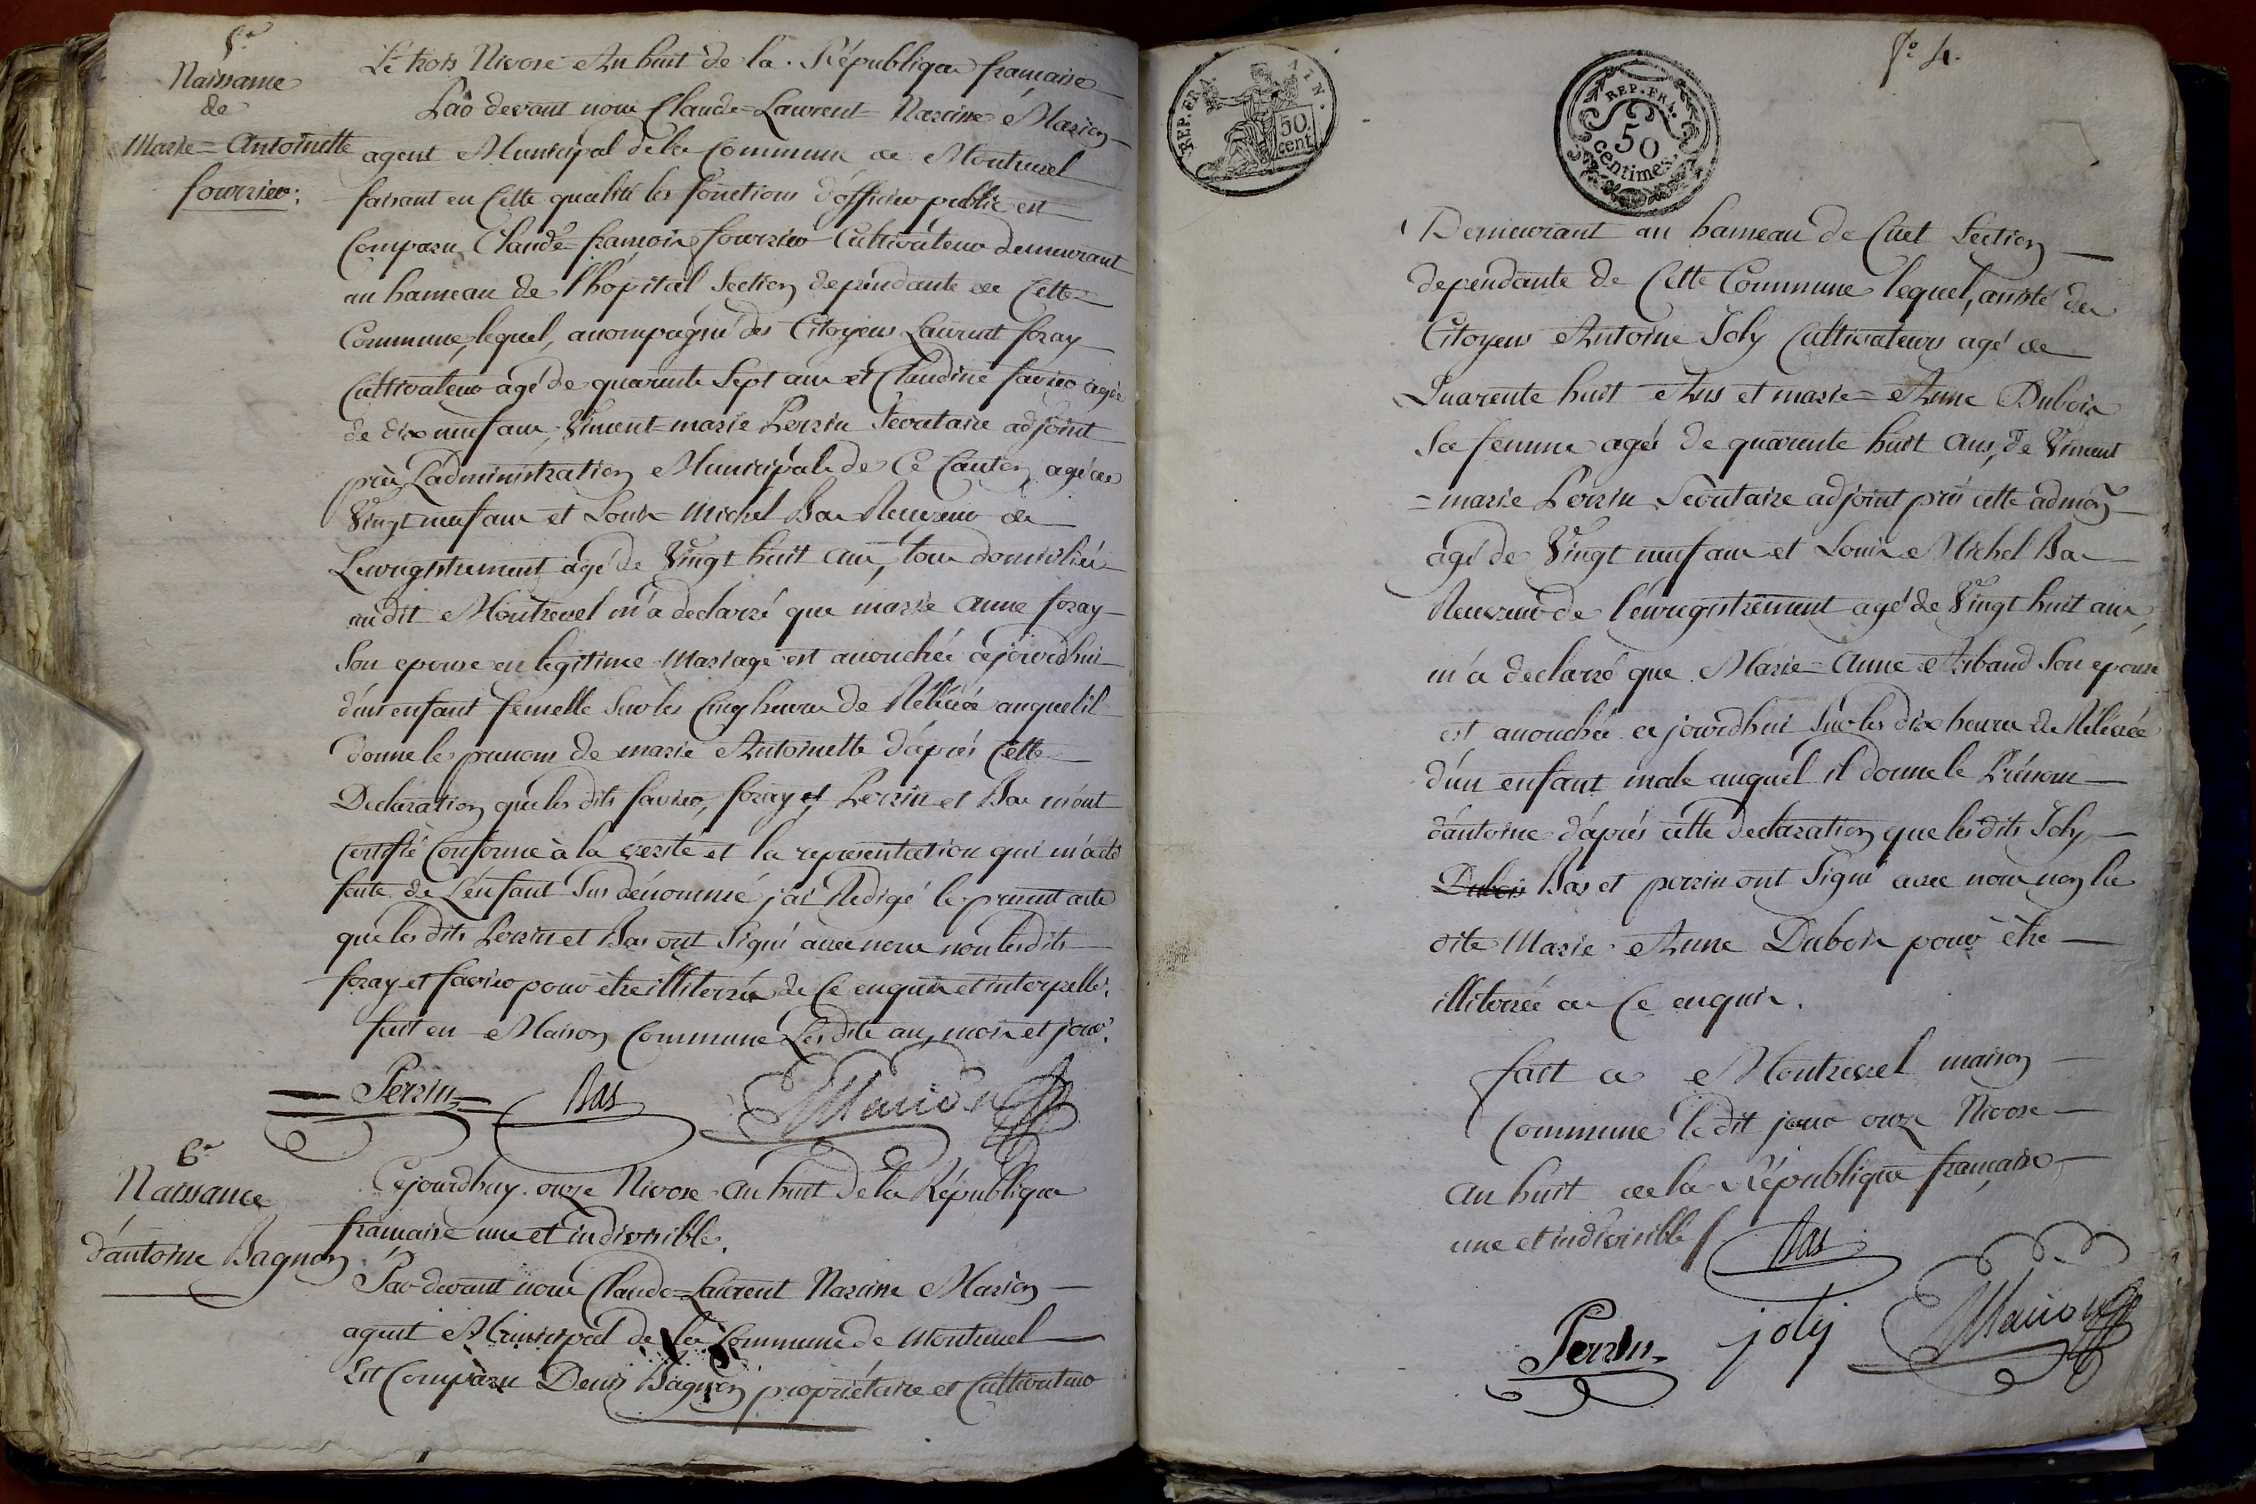 5.e
Naissance
de
Marie=Antoinette
fourrier.
Le trois Nivose An huit de la République francaise
Par devant nous Claude=Laurent=Narcisse Marion
agent Municipal de la Commune de Montrevel
faisant en Cette qualité les fonctions d'officier public est
Comparu Claude=francois fourrier Cultivateur demeurant
au hameau de l'hopital Section dependante de Cette
Commune, lequel, accompagné des Citoyens Laurent foray
Cultivateur agé de quarente Sept ans et Claudine favier agée
de dix neuf ans, Vincent=marie Perrin Secretaire adjoint
près L'administration Municipale de Ce Canton agé de
Vingt neuf ans et Louis Michel Bas Receveur de
L'enregistrement agé de Vingt huit ans, tous domiciliés
audit Montrevel m'a declarré que marie anne foray
Son epouse en legitime Mariage est accouchée cejourdhui
d'un enfant femelle Sur les Cinq heures de Rélévée auquel il
donne le prenom de marie Antoinette d'après Cette
Declaration que les dits favier, foray et Perrin et Bas m'ont
certifié Conforme à la verité et la representation qui m'a été
faite de L'enfant Sus dénommé j'ai Redigé le present acte
que les dits Perrin et Bas ont Signé avec nous non lesdits
foray et favier pour être illiterrés de Ce enquis et interpellé.
fait en Maison Commune Les dits an, mois et jour.
Perrin Bas Marion
6.e
Naissance
d'antoine Bagnon
Cejourdhuy onze Nivose an huit de la République
francaise une et indivisible.
Par devant nous Claude=Laurent Narcisse Marion
agent Municipal de la Commune de Montrevel
Est Comparu Denis Bagnon propriétaire et Cultivateur
REP. FRA. ATN.
50 cent.
REP. FRA.
50
centimes.
f.o 4.
Demeurant au hameau de Cuet Section
dependante de Cette Commune lequel, assisté des
Citoyens Antoine Joly Cultivateurs agé de
Quarente huit Ans et marie=Anne Dubois
Sa femme agée de quarente huit ans, de Vincent
=marie Perrin Secretaire adjoint près cette admon
agé de Vingt neuf ans et Louis Michel Bas
Receveur de l'enregistrement agé de Vingt huit ans,
m'a declarré que Marie=anne Arband Son epouse
est accouchée cejourdhui Sur les dix heures de Rélévée
d'un enfant male auquel il donne le Prénom
d'antoine d'après cette declaration que lesdits Joly
Dubois Bas et perrin ont Signé avec nous non la
dite Marie Anne Dubois pour être
illiterrée de Ce enquis.
fait a Montrevel maison
Commune le dit jour onze Nivose
an huit de la République francaise
une et indivisible
Bas
Perrin joly Marion